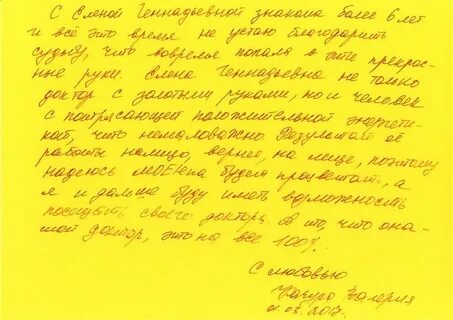 С Еленой Геннадьевной знакома более 6 лет
и всё это время не устаю благодарить
судьбу, что вовремя попала в эти прекрас-
ные руки. Елена Геннадьевна не только
доктор с золотыми руками, но и человек
с потрясающей положительной энергети-
кой, что немаловажно. Результат её
работы налицо, вернее, на лице, поэтому
надеюсь будет процветать, а
я и дальше буду иметь возможность
посещать своего доктора. А то, что она
мой доктор, это на все 100%.
С любовью
Валерия
03. 2017